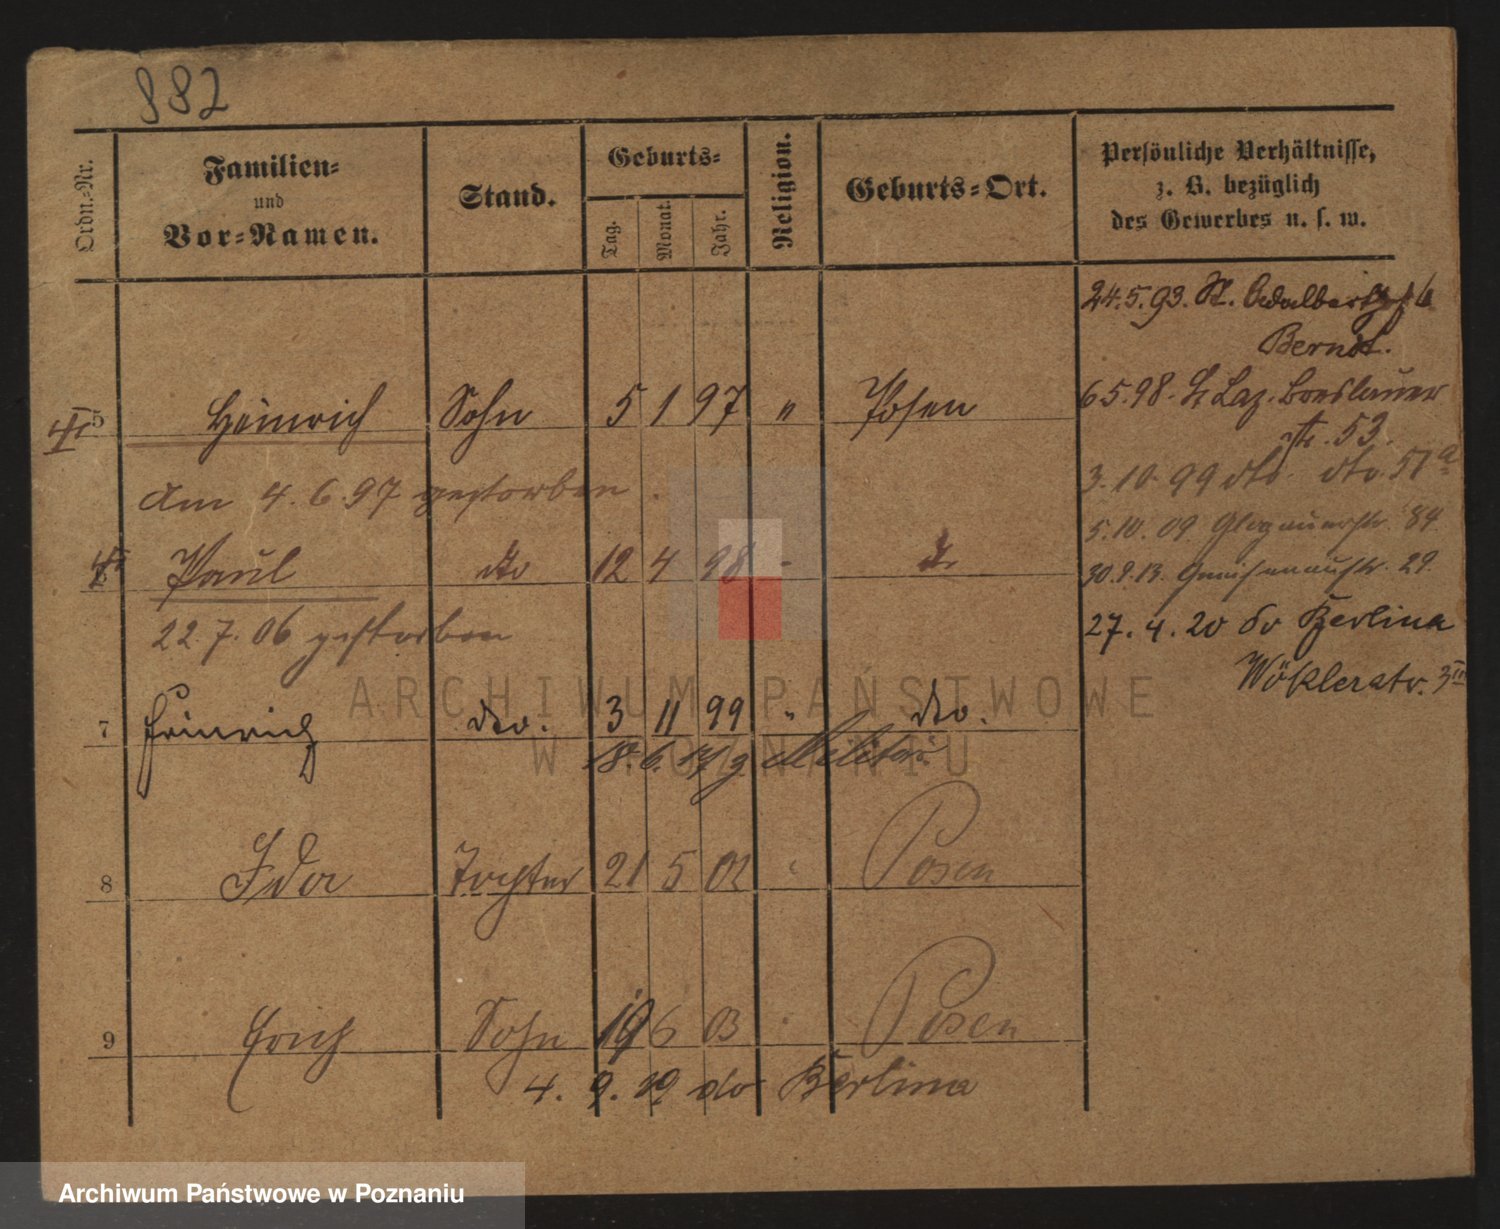 882
Ordn.-Nr.
Familien-
und
Vor-Namen.
Stand.
Geburts-
Tag.
Monat.
Jahr.
Religion.
Geburts-Ort.
Persönliche Verhältnisse,
z. B. bezüglich
des Gewerbes u. s. w.
24.5.93. St. Adalbertstr 6
Berndt.
5 Heinrich Sohn 5 1 97 " Posen
6.5.98. St Laz. Breslauer
str. 53.
am 4.6.97 gestorben.
3.10.99 dto. dto. 51a
5.10.09 Glogauerstr. 84
6 Paul dto 12 4 98 - dto
30.9.13. Gneisenaustr. 29.
22.7.06 gestorben
27.4.20 do Berlina
Wöklerstr. 3III
7 Heinrich dto. 3 11 99 " dto.
18.6.17 z Militär
8 Ida Tochter 21 5 02 " Posen
9 Erich Sohn 19 6 03 " Posen
4.9.19 do Berlina
ARCHIWUM PAŃSTWOWE
W POZNANIU
Archiwum Państwowe w Poznaniu